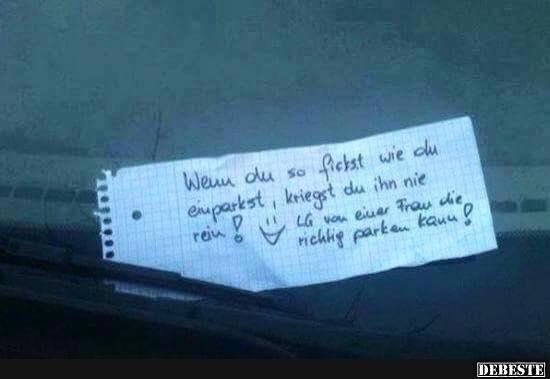 Wenn du so fickst wie du
einparkst, kriegst du ihn nie
rein! LG von einer Frau die
richtig parken kann!
DEBESTE